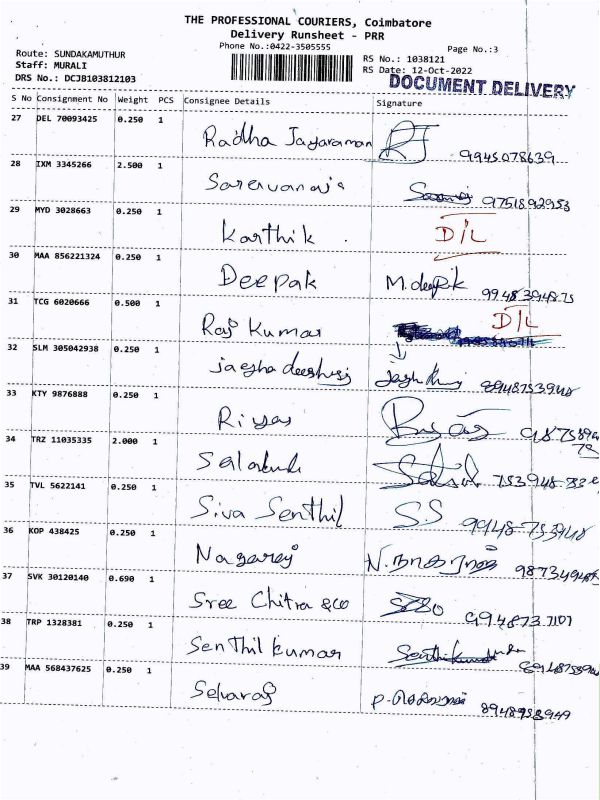 THE PROFESSIONAL COURIERS, Coimbatore
Delivery Runsheet - PRR
Phone No.:0422-3505555
Page No.:3
Route: SUNDAKAMUTHUR
Staff: MURALI
DRS No.: DCJB103812103
RS No.: 1038121
RS Date: 12-Oct-2022
DOCUMENT DELIVERY
S No Consignment No Weight PCS Consignee Details Signature
27 DEL 70093425 0.250 1 Radha Jayaraman RJ 9945078639
28 IXM 3345266 2.500 1 9751892953
29 MYD 3028663 0.250 1 Karthik . D/L
30 MAA 856221324 0.250 1 Deepak M.deepik 9948394875
31 TCG 6020666 0.500 1 Raj Kumar D/L
32 SLM 305042938 0.250 1 8948753948
33 KTY 9876888 0.250 1 Riyas
34 TRZ 11035335 2.000 1
35 TVL 5622141 0.250 1 Siva Senthil S.S 9948-753948
36 KOP 438425 0.250 1 Nagaraj N.நாகராஜ்
37 SVK 30120140 0.690 1 Sree Chitra &co
38 TRP 1328381 0.250 1 Senthil kumar
39 MAA 568437625 0.250 1 Selvaraj